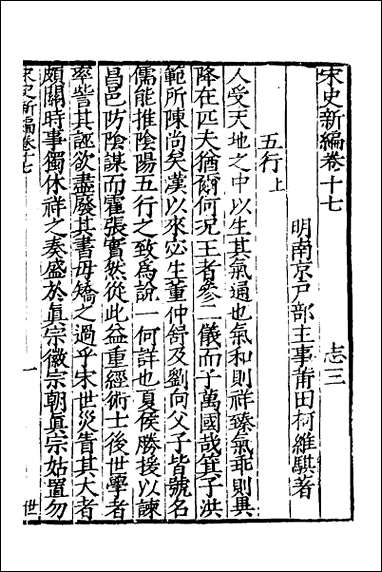 宋史新編卷十七　　志三
明南京戶部主事莆田柯維騏著
五行上
人受天地之中以生其氣通也氣和則祥臻氣乖則異
降在匹夫猶爾何況王者參二儀而子萬國哉箕子洪
範所陳尚矣漢以來宓生董仲舒及劉向父子皆號名
儒能推陰陽五行之致爲說一何詳也夏侯勝援以諫
昌邑防陰謀而霍張實然從此益重經術士後世學者
率訾其誣欲盡廢其書毋矯之過乎宋世災眚其大者
頗關時事獨休祥之奏盛於眞宗徽宗朝眞宗姑置勿
宋史新編卷十七　一　世